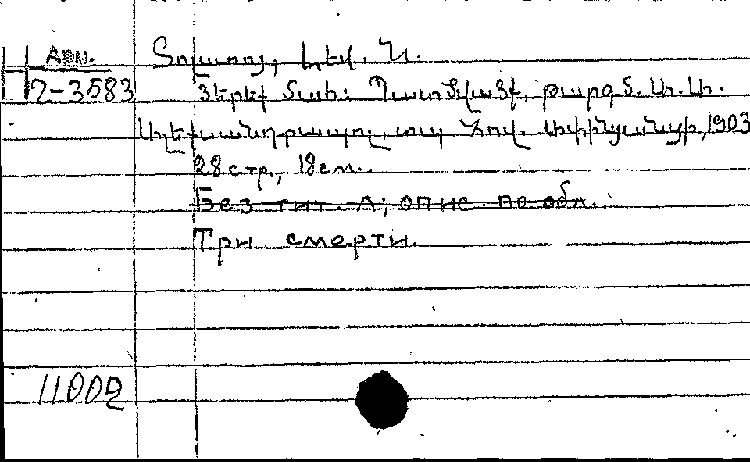 Арм.
2-3583
Տոլստոյ, Լեվ. Ն.
Յերեք մահ: Պատմվածք, թարգմ. Ա.Ա.
Ալեքսանդրապոլ, տպ. 1903
28 стр., 18 см.
Без тит. л; опис по обл.
Три смерти.
11002